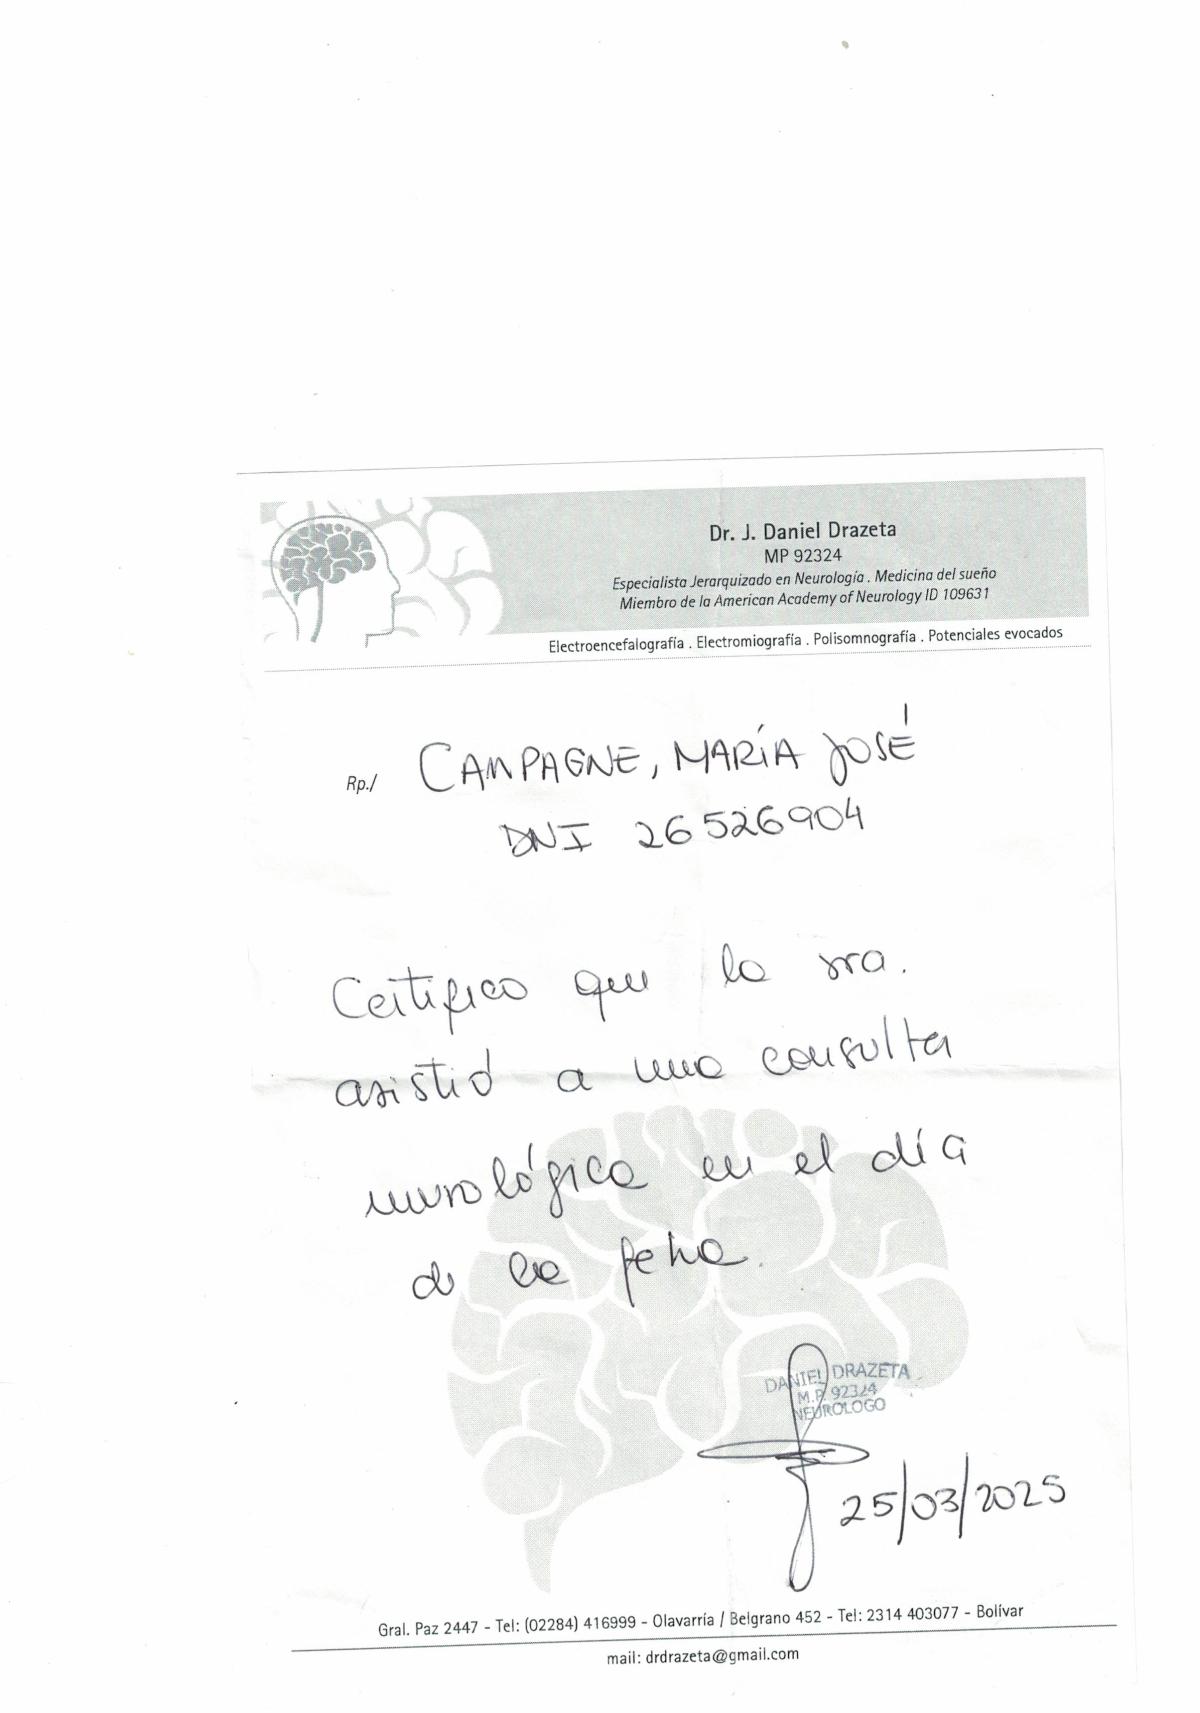 Dr. J. Daniel Drazeta
MP 92324
Especialista Jerarquizado en Neurología . Medicina del sueño
Miembro de la American Academy of Neurology ID 109631
Electroencefalografía . Electromiografía . Polisomnografía . Potenciales evocados
Rp./ CAMPAGNE, MARÍA JOSÉ
DNI 26526904
Certifico que la sra.
asistió a una consulta
neurológica en el día
de la fecha.
DANIEL DRAZETA
M.P. 92324
NEUROLOGO
25/03/2025
Gral. Paz 2447 - Tel: (02284) 416999 - Olavarría / Belgrano 452 - Tel: 2314 403077 - Bolívar
mail: drdrazeta@gmail.com